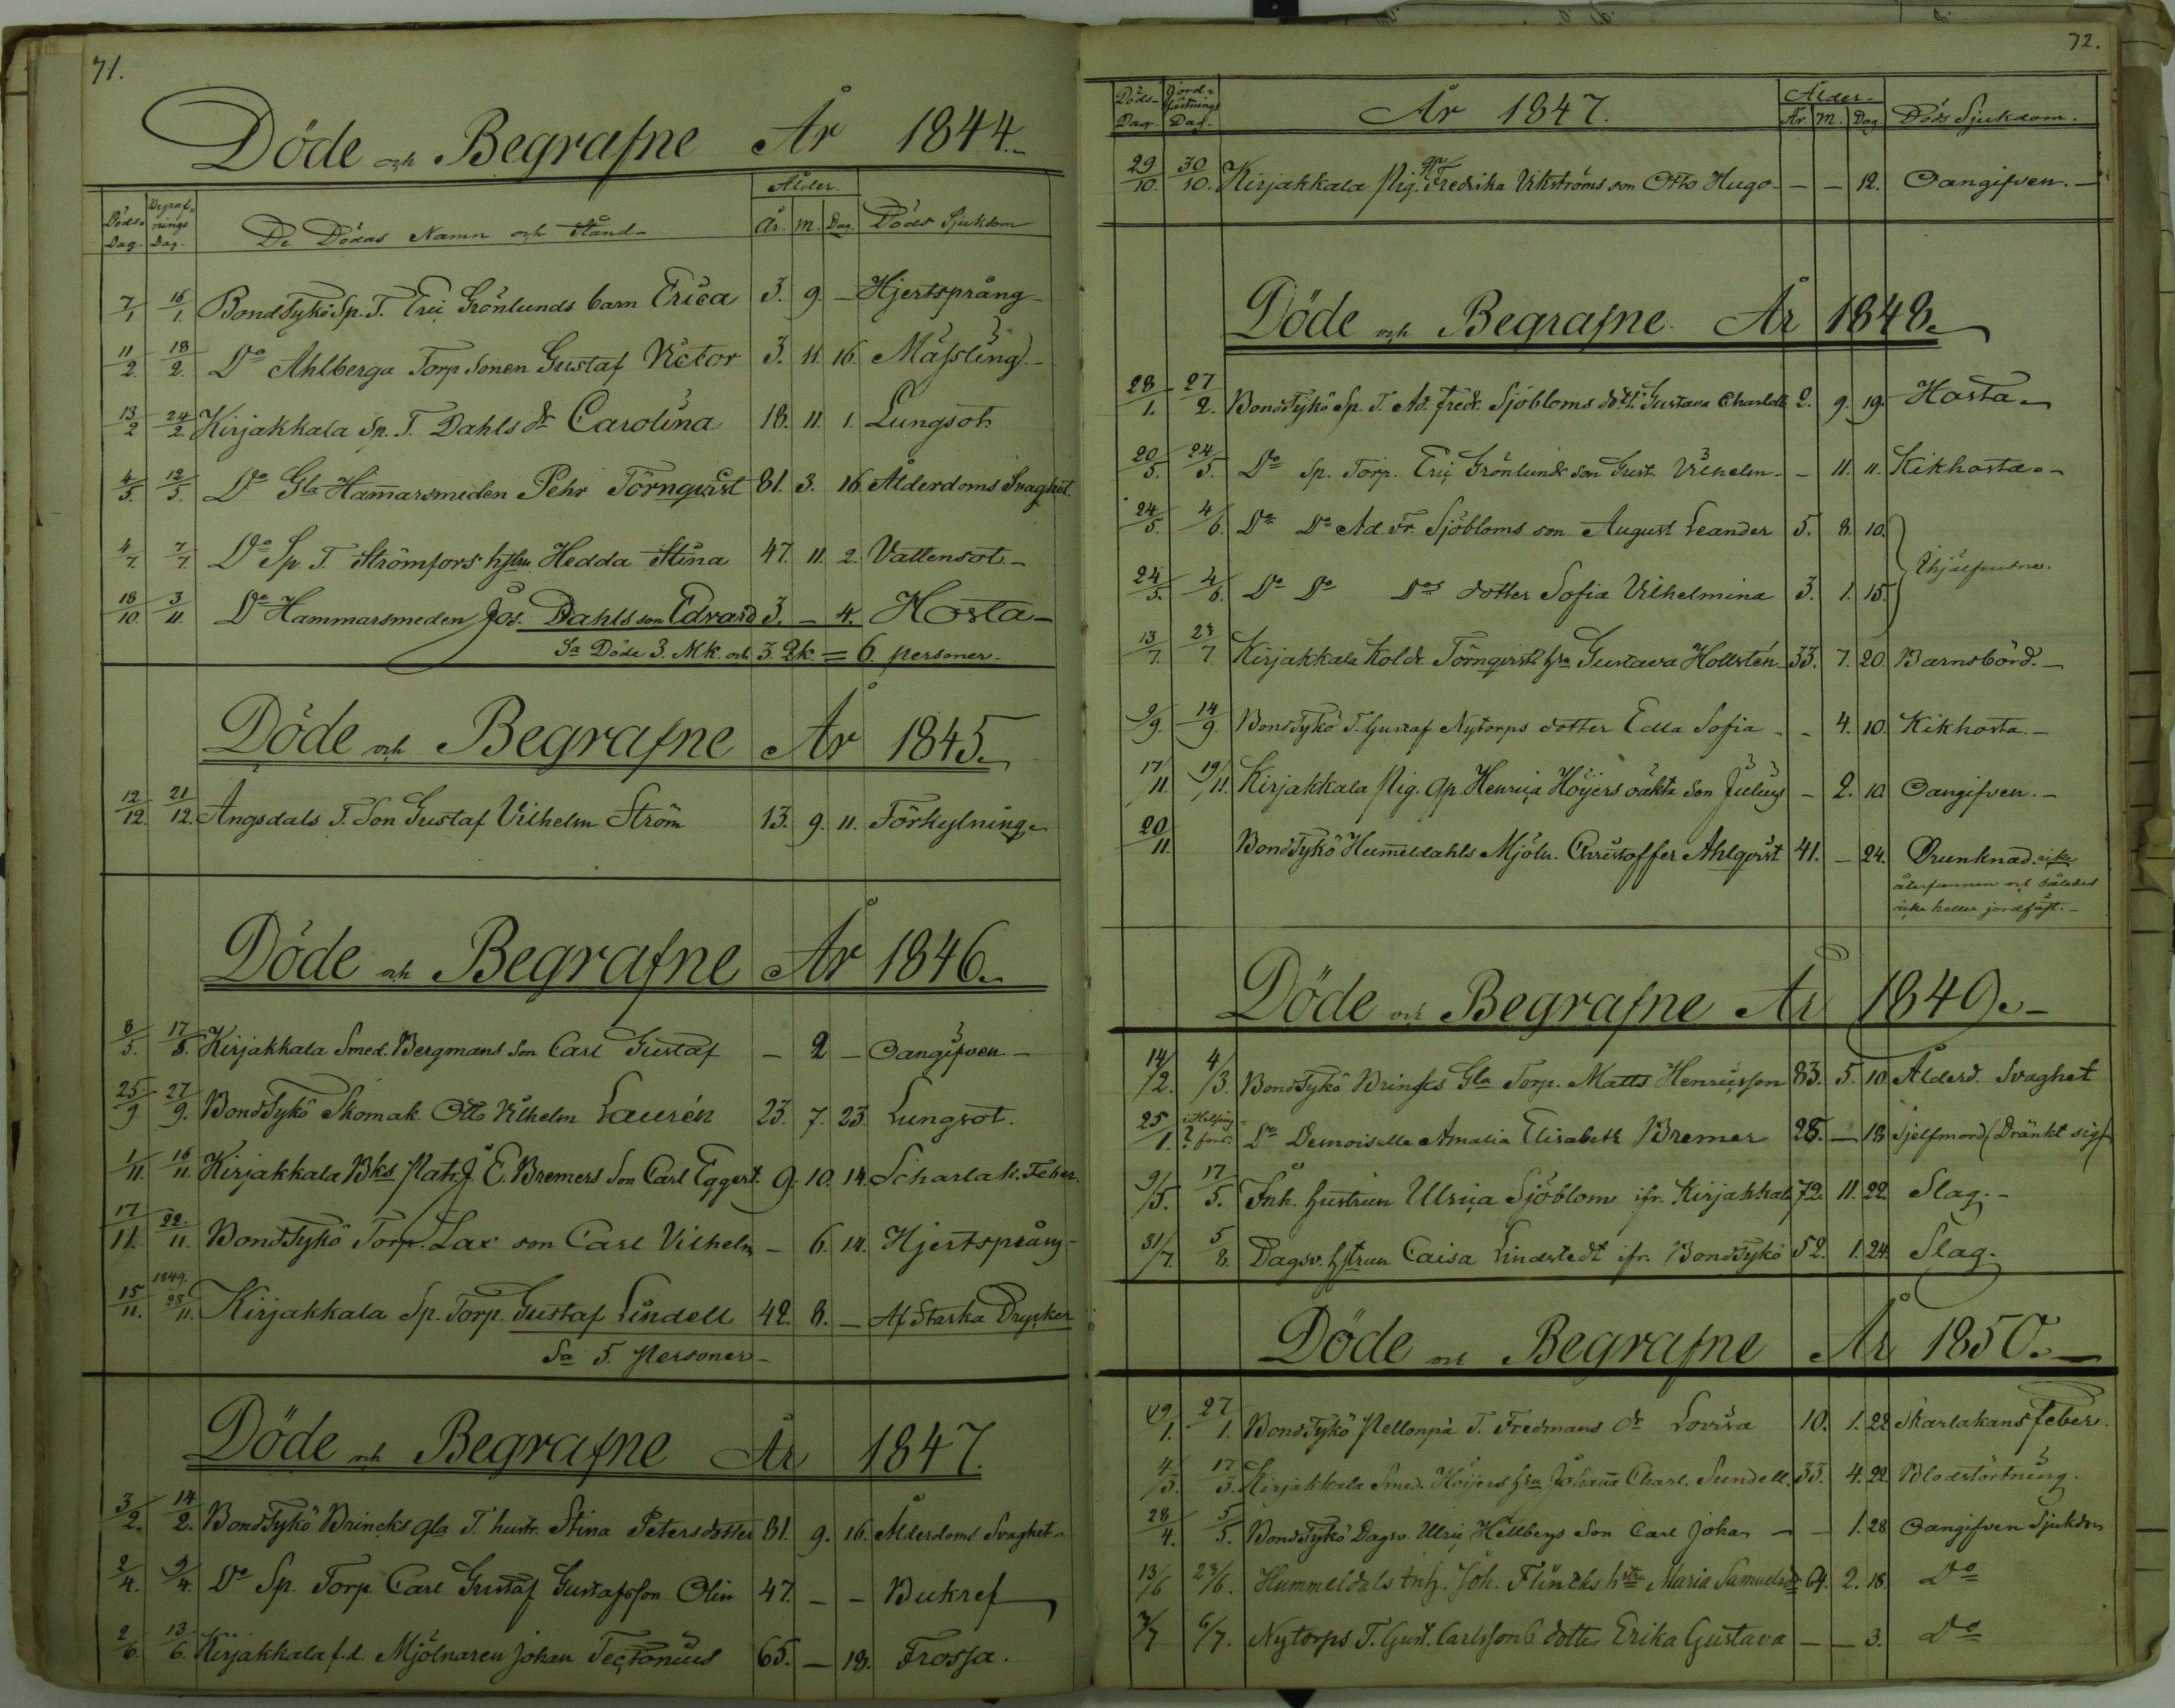 71.
Döde och Begrafne År 1844.
Döds- Dag. Begraf- nings Dag. De Dödas Namn och Stånd Ålder. År. M. Dag. Döds Sjukdom
7/1 16/1. BondTykö Sp. T. Eric Grönlunds barn Erica 3. 9. — Hjertsprång
11/2 18/2. Do Ahlberga Torp. Sonen Gustaf Victor 3. 11. 16. Mässling.
13/2 24/2. Kirjakkala Sp. T. Dahls dr Carolina 18. 11. 1. Lungsot
4/5. 12/5. Do Gla Hammarsmeden Pehr Törnqvist 81. 3. 16. Ålderdoms Svaghet.
4/7. 7/7. Do Sp. T. Strömfors hstru Hedda Stina 47. 11. 2. Vattensot.
18/10. 3/11. Do Hammarsmeden Jos. Dahls son Edvard 3. — 4. Hosta
Sa Döde 3. Mk. och 3. Qk. = 6. personer.
Döde och Begrafne År 1845.
12/12. 21/12. Angsdals T. Son Gustaf Vilhelm Ström 13. 9. 11. Förkylning.
Döde och Begrafne År 1846.
8/5. 17/5. Kirjakkala Smed. Bergmans Son Carl Gustaf — 2 — Oangifven
25/9 27/9. BondTykö Skomak. Otto Vilhelm Laurén 23. 7. 23 Lungsot.
1/11. 16/11. Kirjakkala Bks Patr. J. E. Bremers Son Carl Eggert. 9. 10. 14. Scharlak. Feber.
17/11. 22./11. BondTykö Torp. Lax son Carl Vilhelm — 6. 14. Hjertsprång
15/11. 1849. 28/11. Kirjakkala Sp. Torp. Gustaf Lindell 42. 8. — Af Starka Drycker
Sa 5. Personer
Döde och Begrafne År 1847.
3/2. 14/2. BondTykö Brincks gla T. hustr. Stina Petersdotter 81. 9. 16. Ålderdoms Svaghet
2/4. 9/4. Do Sp. Torp. Carl Gustaf Gustafsson Olin 47. — — Bukref
2/6. 13/6. Kirjakkala f.d. Mjölnaren Johan Tectonius 65. — 18. Frossa.
72.
Döds- Dag. Jord- fästnings Dag. År 1847. Ålder. År M. Dag Döds Sjukdom.
29/10. 30/10. Kirjakkala Pig. Fredrika Vikströms son Otto Hugo — — 12. Oangifven.
Döde och Begrafne År 1848.
28/1. 27/2. BondTykö Sp. T. Ad. Fredr. Sjöbloms dott. Gustava Charlotta 2. 9. 19. Hosta
20/5. 24/5. Do Sp. Torp. Eric Grönlunds son Gust. Vilhelm — 11. 11. Kikhosta
24/5. 4/6. Do Do Ad. Fr. Sjöbloms son August Leander 5. 8. 10.
24/5. 4/6. Do Do Dos dotter Sofia Vilhelmina 3. 1. 15.
13/7. 23/7. Kirjakkala Koldr. Törnqvists hru Gustava Hollstén 33. 7. 20. Barnsbörd.
9/9. 14/9. BondTykö T. Gustaf Nytorps dotter Edla Sofia — 4. 10. Kikhosta.
17/11. 19/11. Kirjakkala Pig. Qp. Henrica Höijers oäkta son Julius — 2. 10 Oangifven.
20/11. BondTykö Hummeldahls Mjöln. Christoffer Ahlqvist 41. — 24. Drunknad. icke
återfunnen och således
icke heller jordfäst.
Döde och Begrafne År 1849.
14/2. 4/3. BondTykö Brincks Gla Torp. Matts Henricsson 83. 5. 10 Ålderd. Svaghet
25/1. i Helsing- fors. Do Demoiselle Amalia Elisabeth Bremer 28. — 18 Sjelfmord (Dränkt sig)
9/5. 17/5. Inh. hustrun Ulrica Sjöblom ifr. Kirjakkala 72. 11. 22. Slag.
31/7. 5/8. Dagsv. hstrun Caisa Lindstedt ifr. BondTykö 52. 1. 24. Slag.
Döde och Begrafne År 1850.
19/1. 27/1. BondTykö Pellonpä T. Fredmans dr Lovisa 10. 1. 22 Skarlakansfeber.
4/3. 17/3. Kirjakkala Smed. Höijers hru Johanna Charl. Sundell. 33. 4. 22. Blodstörtning.
28/4. 5/5. BondTykö Dagsv. Ulric Hellbergs Son Carl Johan — — 1. 28 Oangifven Sjukdom
13/6 23/6. Hummeldals Inh. Joh. Flincks hstru Maria Samuelsdr 64. 2. 18. Do
3/7 6/7. Nytorps T. Gust. Carlssons dotter Erika Gustava — — 3. Do